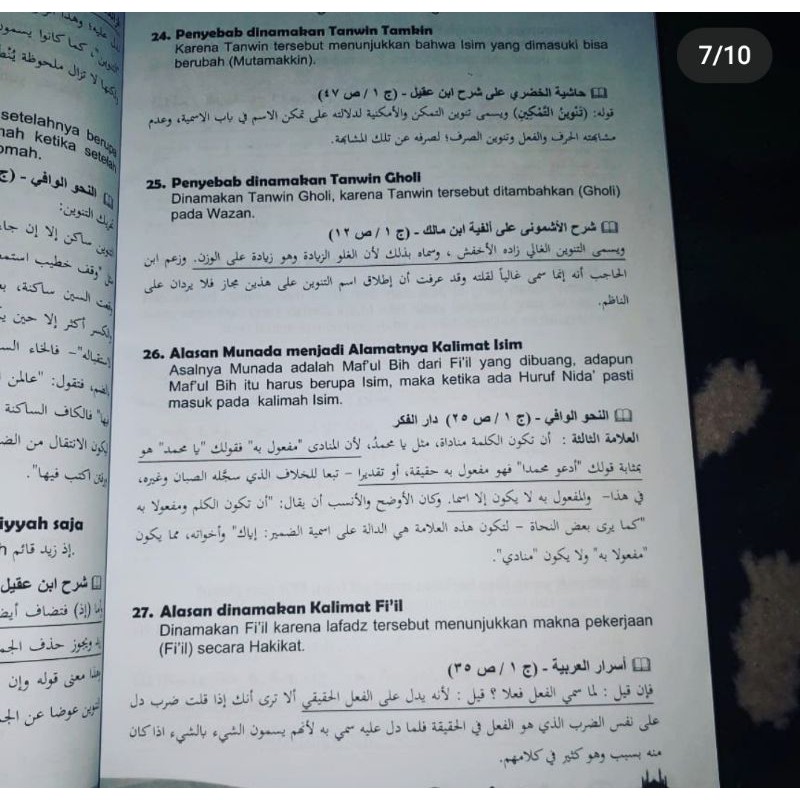 7/10
24. Penyebab dinamakan Tanwin Tamkin
Karena Tanwin tersebut menunjukkan bahwa Isim yang dimasuki bisa
berubah (Mutamakkin).
حاشية الخضري على شرح ابن عقيل - (ج ١ / ص ٤٧)
قوله: (تَنْوِينُ التَّمْكِينِ) ويسمى تنوين التمكن والأمكنية لدلالته على تمكن الاسم في باب الاسمية، وعدم
مشابهته الحرف والفعل وتنوين الصرف؛ لصرفه عن تلك المشابهة.
25. Penyebab dinamakan Tanwin Gholi
Dinamakan Tanwin Gholi, karena Tanwin tersebut ditambahkan (Gholi)
pada Wazan.
شرح الأشمونى على ألفية ابن مالك - (ج ١ / ص ١٢)
ويسمى التنوين الغالي زاده الأخفش ، وسماه بذلك لأن الغلو الزيادة وهو زيادة على الوزن. وزعم ابن
الحاجب أنه إنما سمى غالياً لقلته وقد عرفت أن إطلاق اسم التنوين على هذين مجاز فلا يردان على
الناظم.
26. Alasan Munada menjadi Alamatnya Kalimat Isim
Asalnya Munada adalah Maf'ul Bih dari Fi'il yang dibuang, adapun
Maf'ul Bih itu harus berupa Isim, maka ketika ada Huruf Nida' pasti
masuk pada kalimah Isim.
النحو الوافي - (ج ١ / ص ٢٥) دار الفكر
العلامة الثالثة : أن تكون الكلمة مناداة، مثل يا محمدُ، لأن المنادى "مفعول به" فقولك "يا محمد" هو
بمثابة قولك "أدعو محمدا" فهو مفعول به حقيقة، أو تقديرا – تبعا للخلاف الذي سجَّله الصبان وغيره،
في هذا– والمفعول به لا يكون إلا اسما. وكان الأوضح والأنسب أن يقال: "أن تكون الكلم ومفعولا به
"كما يرى بعض النحاة – لتكون هذه العلامة هي الدالة على اسمية الضمير: إياك" وأخواته، مما يكون
"مفعولا به" ولا يكون "منادي".
27. Alasan dinamakan Kalimat Fi'il
Dinamakan Fi'il karena lafadz tersebut menunjukkan makna pekerjaan
(Fi'il) secara Hakikat.
أسرار العربية - (ج ١ / ص ٣٥)
فإن قيل : لما سمي الفعل فعلا ؟ قيل : لأنه يدل على الفعل الحقيقي ألا ترى أنك إذا قلت ضرب دل
على نفس الضرب الذي هو الفعل في الحقيقة فلما دل عليه سمي به لأنهم يسمون الشيء بالشيء اذا كان
منه بسبب وهو كثير في كلامهم.
setelahnya berupa
ketika setelah
omah.
النحو الوافي - (ج
التنوين:
ساكن إلا إن جاء
"وقف خطيب
السين ساكنة،
أكثر إلا حين
فالخاء
فتقول: "عالمن
فالكاف الساكنة
الانتقال من
اكتب فيها".
iyyah saja
إذ زيد قائم.
شرح ابن عقيل
(إذ) فتضاف
ويجوز حذف
معنى قوله وإن
عوضا عن